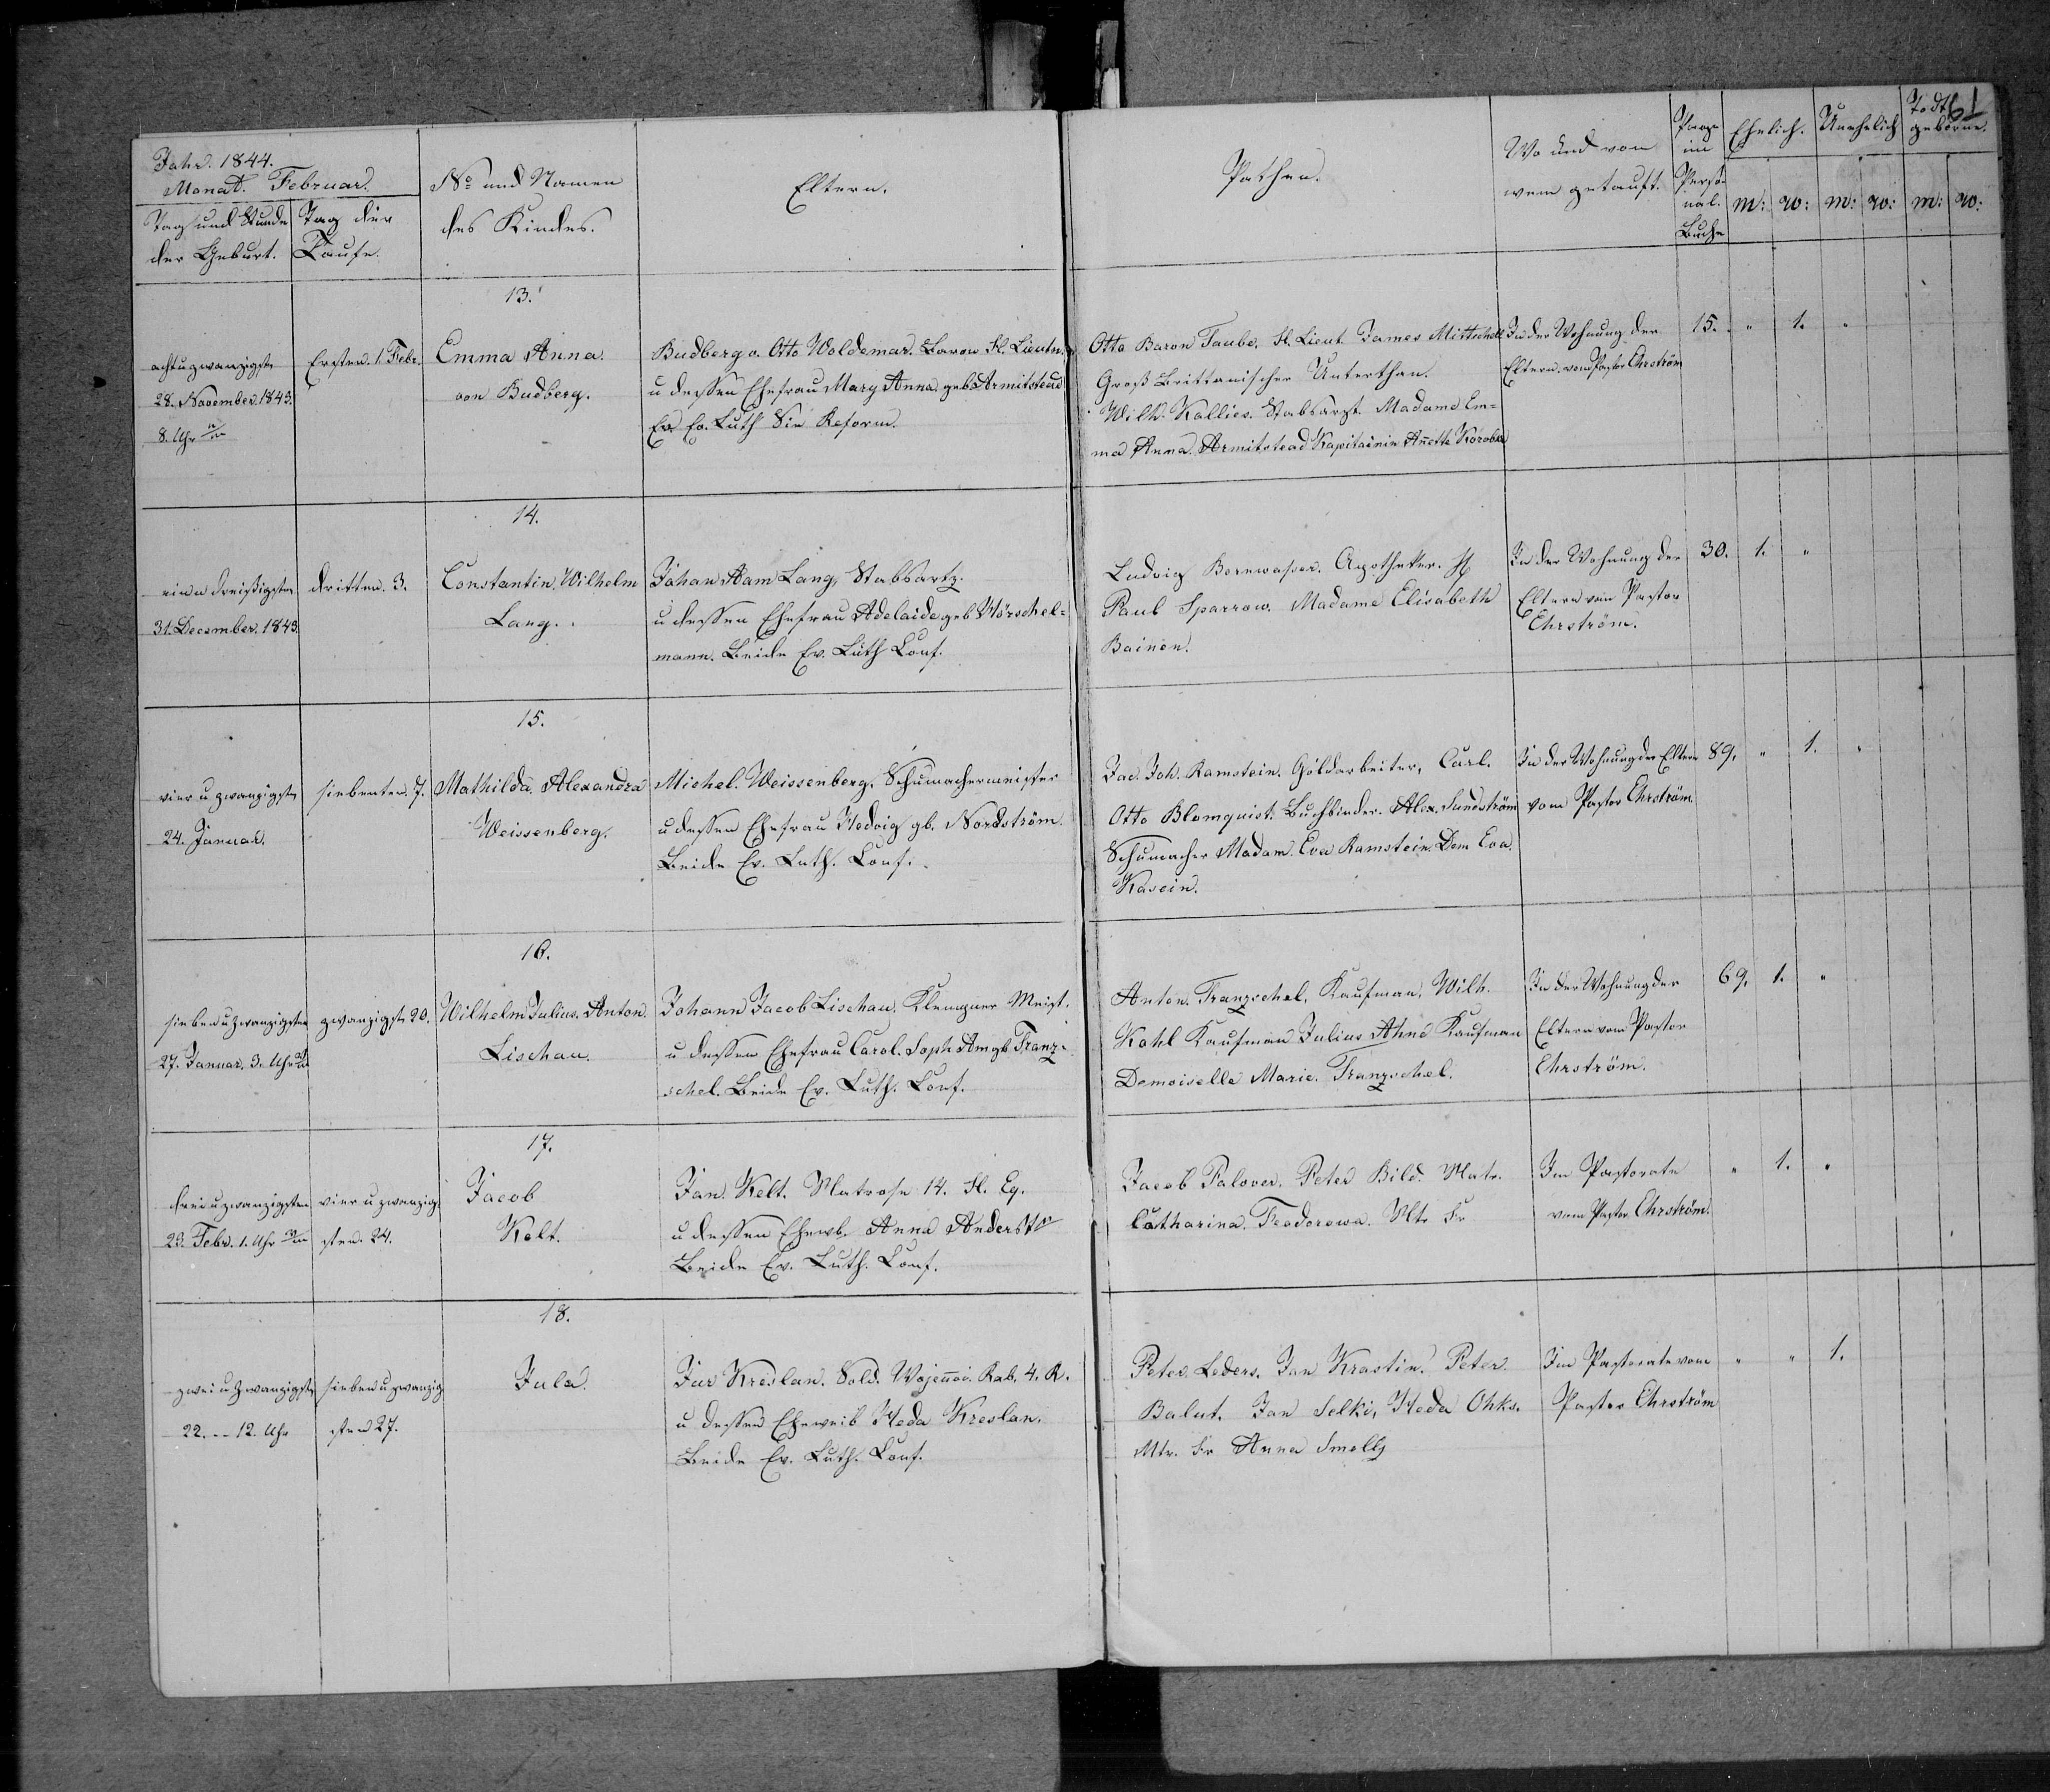 61
Jahr. 1844.
Monat. Februar.
Tag und Stunde
der Geburt.
Tag der
Taufe.
No und Namen
des Kindes.
Eltern.
Pathen.
Wo und von
wem getauft.
Page
im
Perso-
nal-
Buche
Ehelich.
Unehelich
Todt
geborne.
m: w: m: w: m: w:
13.
acht u zwanzigsten
28. November. 1843.
8. Uhr
Ersten. 1. Febr.
Emma Anna.
von Budberg.
Budberg v. Otto Woldemar. Baron Fl. Lieutn.
u dessen Ehefrau Mary Anna geb. Armitstead
Er Ev. Luth Sie Reform.
Otto Baron Taube. Fl. Lieut. James Mittschell
Groß Brittanischer Unterthan.
Wilh. Kallies. Stabsarzt. Madame Em=
ma Anna. Armitstead Kapitainin Anette Korobka
In der Wohnung der
Eltern. vom Pastor Ehrström
15. " 1. "
14.
ein u dreißigsten
31. December. 1843.
dritten. 3.
Constantin. Wilhelm
Lang.
Johan Aam Lang, Stabsartz.
u dessen Ehefrau Adelaide geb Wörschel=
mann. Beide Ev. Luth Conf.
Ludvig Bornwasser. Apotheker. H
Paul Sparrow. Madame Elisabeth
Bainen.
In der Wohnung der
Eltern vom Pastor
Ehrström.
30. 1. "
15.
vier u zwanzigsten
24. Januar.
siebenten. 7.
Mathilda. Alexandra
Weissenberg.
Michel. Weissenberg. Schumachermeister
u dessen Ehefrau Hedvig gb. Nordström.
Beide Ev. Luth. Conf.
Jac. Joh. Ramstein. Goldarbeiter, Carl.
Otto Blomquist. Buchbinder. Alex. Sundström
Schumacher Madam. Eva Ramstein. Dem Eva.
Kasein.
In der Wohnung der Eltern
vom Pastor Ehrström.
89. " 1. "
16.
sieben u zwanzigsten
27. Januar. 3. Uhr
zwanzigst 20.
Wilhelm Julius. Anton.
Lischau.
Johann Jacob Lischau. Klempner Meist.
u dessen Ehefrau Carol. Soph Am gb Franz-
schel. Beide Ev. Luth. Conf.
Anton. Franzschel. Kaufman. Wilh.
Kahl Kaufman Julius Ahné Kaufman
Demoiselle Marie. Franzschel.
In der Wohnung der
Eltern vom Pastor
Ehrström.
69. 1. "
17.
drei u zwanzigsten
23. Febr. 1. Uhr
vier u zwanzig-
sten. 24.
Jacob
Kelt.
Jan. Kelt. Matrose 14. Fl. Eq.
u dessen Ehewb. Anna Anderstr
Beide Ev. Luth. Conf.
Jacob Palover. Peter Bild. Matr.
Catharina. Feodorowa. Mtr. Fr
Im Pastorate
vom Pastor Ehrström.
" 1. "
18.
zwei u zwanzigsten
22. -- 12. Uhr
sieben u zwanzig
sten 27.
Jula.
Jur Kreslan. Sold. Wojennoi. Rab. 4. R.
u dessen Eheweib Heda Kreslan.
Beide Ev. Luth. Conf.
Peter Leders. Jan Krastin. Peter
Balut. Jan Selki, Heda Ohks.
Mtr. Fr Anna Smelly
Im Pastorate vom
Pastor Ehrström
" " 1.